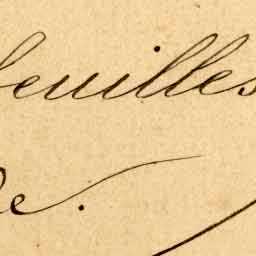 feuilles
de.